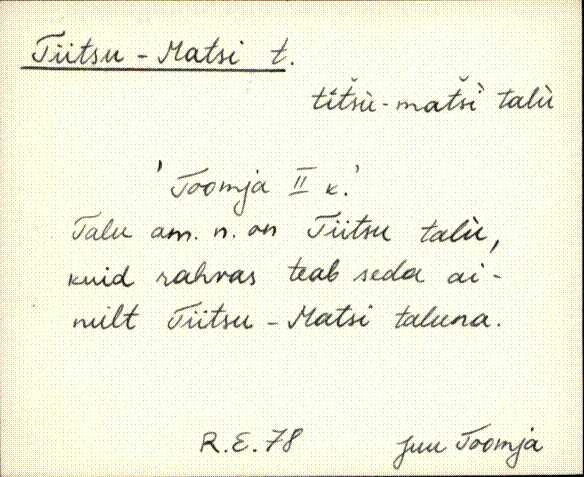 Tiitsu - Matsi t.
tiťšù-maťšì talù
'Toomja II k.'
Talu am. n. on Tiitsu talù,
kuid rahvas teab seda ai-
nult Tiitsu - Matsi taluna.
R.E. 78 Juu Toomja